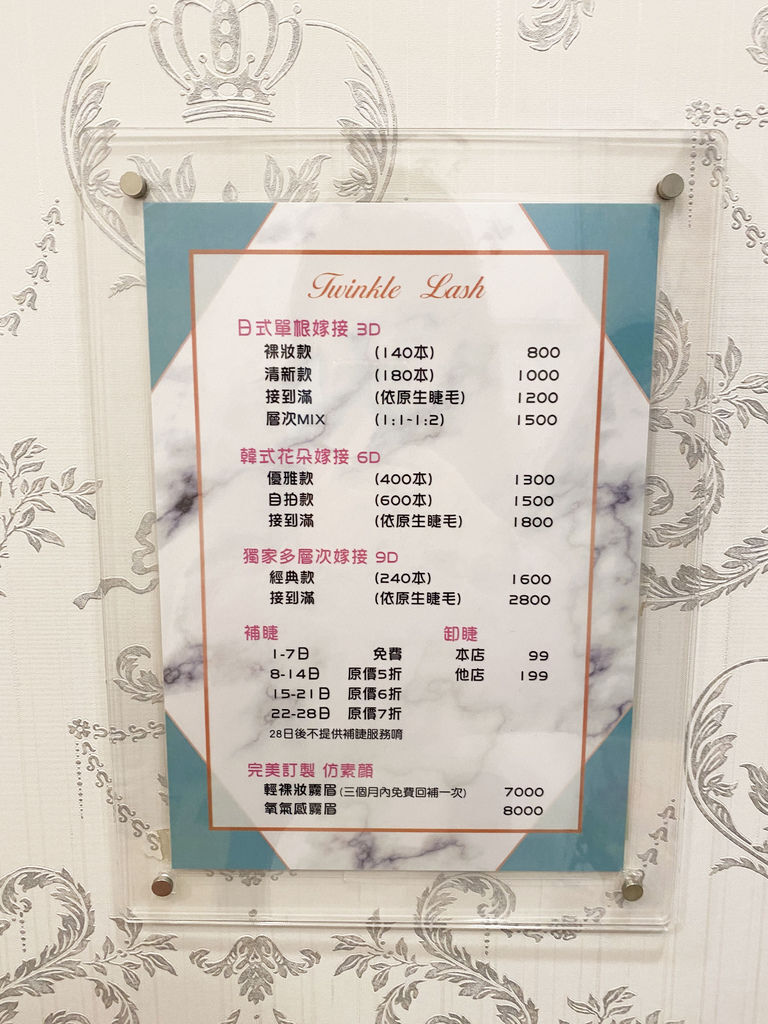 Twinkle Lash
日式單根嫁接 3D
裸妝款 (140本) 800
清新款 (180本) 1000
接到滿 (依原生睫毛) 1200
層次MIX (1:1~1:2) 1500
韓式花朵嫁接 6D
優雅款 (400本) 1300
自拍款 (600本) 1500
接到滿 (依原生睫毛) 1800
獨家多層次嫁接 9D
經典款 (240本) 1600
接到滿 (依原生睫毛) 2800
補睫 卸睫
1-7日 免費 本店 99
8-14日 原價5折 他店 199
15-21日 原價6折
22-28日 原價7折
28日後不提供補睫服務唷
完美訂製 仿素顏
輕裸妝霧眉 (三個月內免費回補一次) 7000
氧氣感霧眉 8000